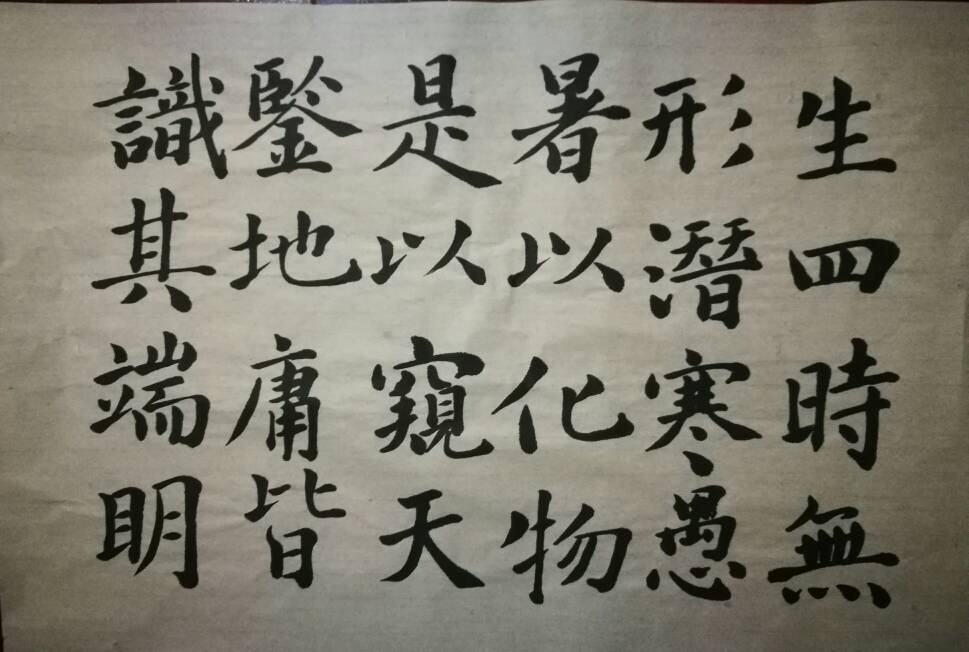 生四時無
形潛寒愚
暑以化物
是以窺天
鑒地庸皆
識其端明